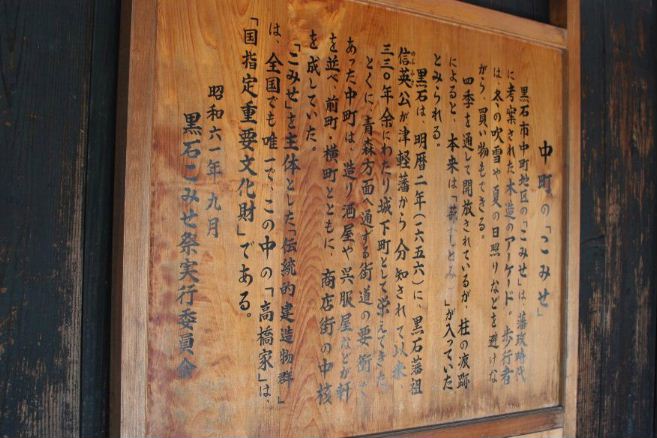 中町の「こみせ」
黒石市中町地区の「こみせ」は、藩政時代
に考案された木造のアーケード。歩行者
は冬の吹雪や夏の日照りなどを避けな
がら、買い物もできる。
四季を通して開放されているが、柱の痕跡
によると、本来は「蔀(しとみ)」が入っていた
とみられる。
黒石は、明暦二年(一六五六)に、黒石藩祖
信英公が津軽藩から分知されて以来
三三〇年余にわたり城下町として栄えてきた。
とくに、青森方面へ通ずる街道の要衝で
あった中町は、造り酒屋や呉服屋などが軒
を並べ、前町・横町とともに、商店街の中核
を成していた。
「こみせ」を主体とした「伝統的建造物群」
は、全国でも唯一で、この中の「高橋家」は、
「国指定重要文化財」である。
昭和六一年九月
黒石こみせ祭実行委員会